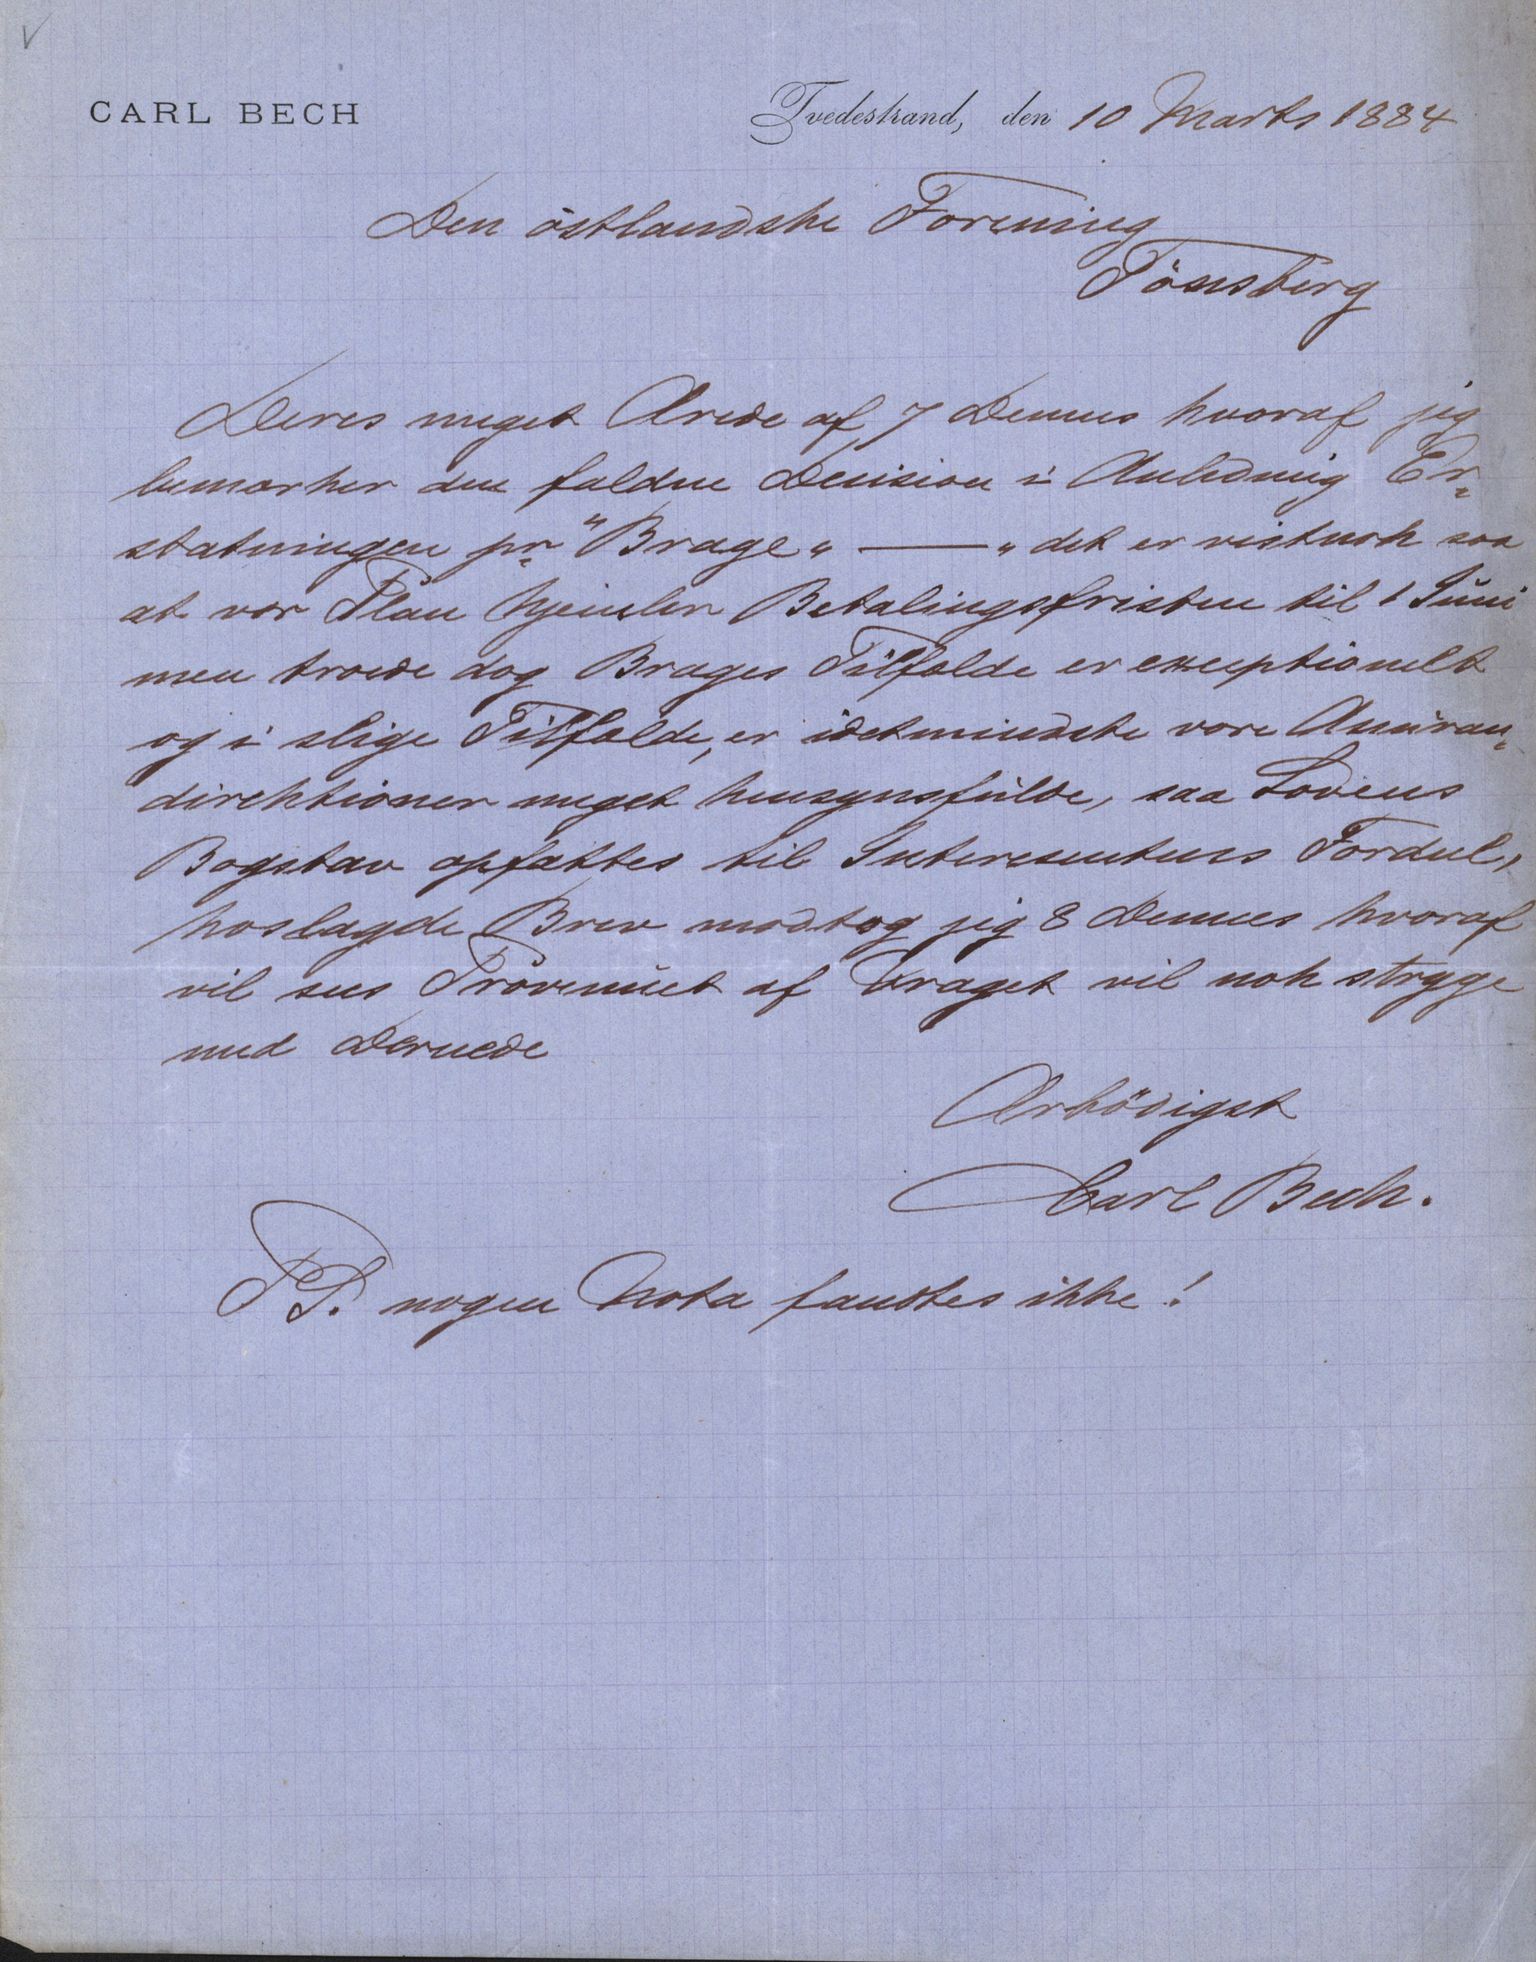 CARL BECH
Tvedestrand, den 10 Marts 1884
Den östlandske Forening
Tönsberg
Deres meget Ærede af 7 Dennes hvoraf jeg
bemærker den faldne Decision i Anledning Er-
statningen pr "Brage" — " det er vistnok saa
at vor Plan hjemler Betalingsfristen til 1 Juni
men troede dog Brages Tilfælde er exceptionelt
og i slige Tilfælde, er idetmindste vore Assuran-
direktioner meget hensynsfulde, saa Lovens
Bogstav opfattes til Interesentens Fordeel,
hoslagde Brev modtog jeg 8 Dennes hvoraf
vil sees Provenuet af Vraget vil nok stryge
med Dernede
Ærbödigst
Carl Bech.
PS. nogen Nota fandtes ikke!